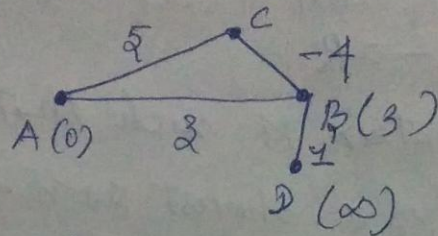 C
5
-4
A(0)
3
B(3)
1
D (∞)